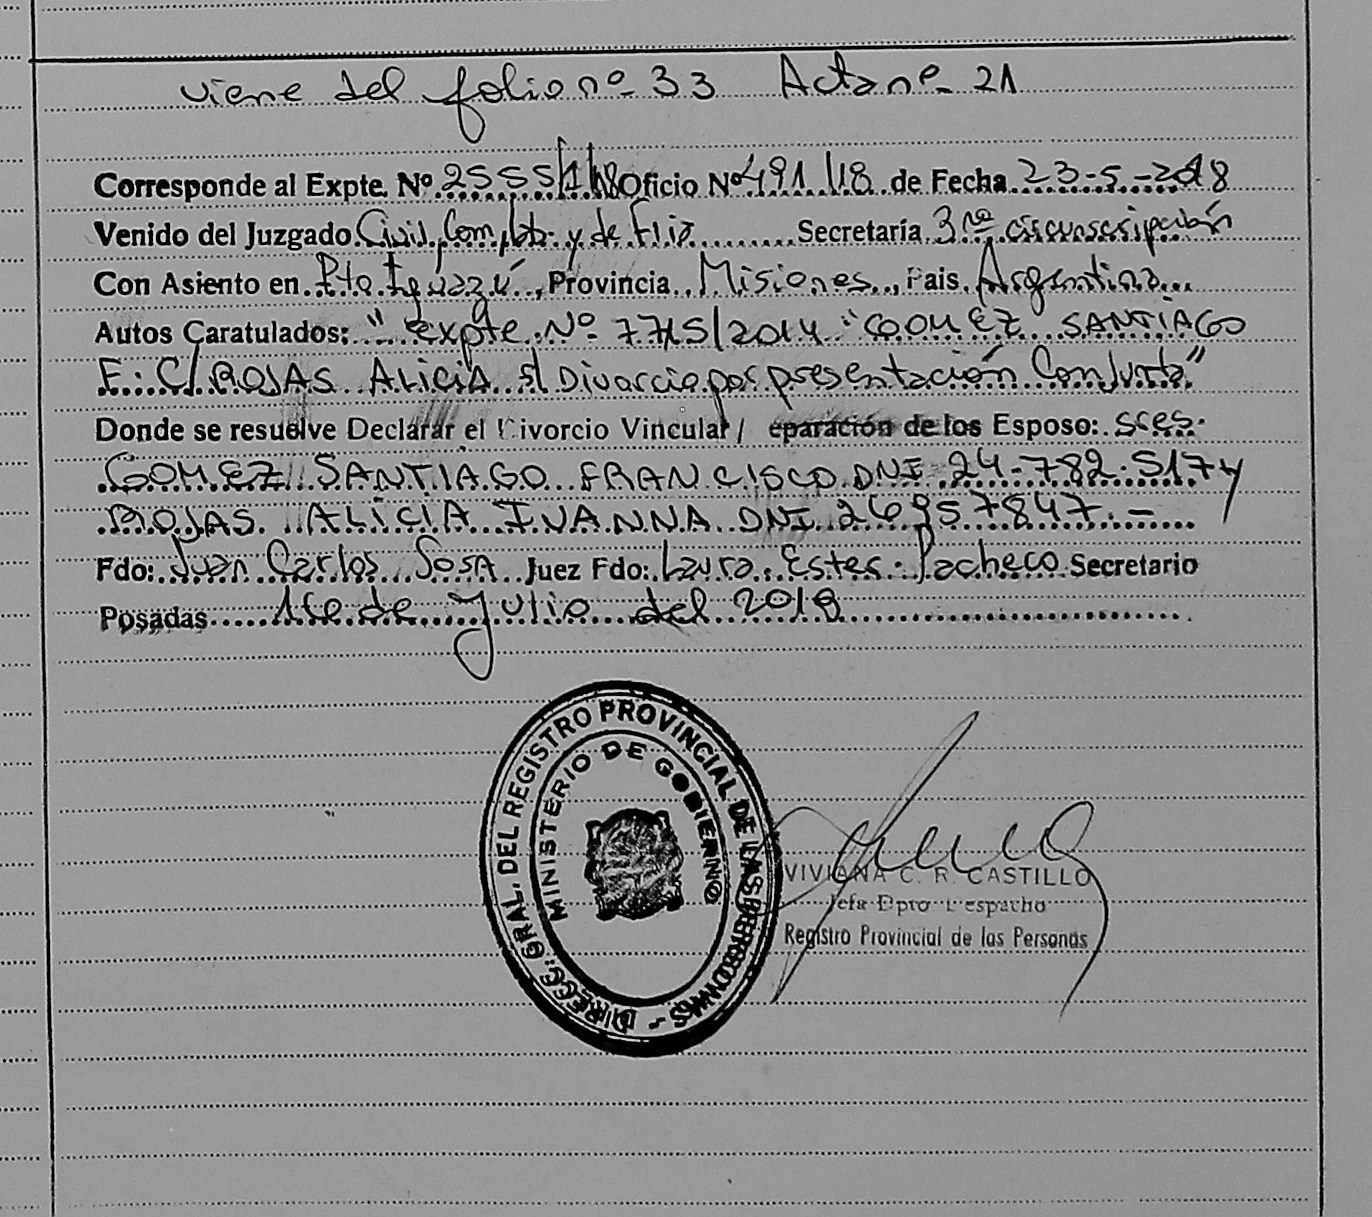 viene del folio nº 33 Acta nº 21
Corresponde al Expte. Nº 2555/1/18 Oficio Nº 491/18 de Fecha 23-5-2018
Venido del Juzgado Civil, Com, Lab. y de Flia Secretaría 3ra circunscripción
Con Asiento en Pto Iguazú, Provincia Misiones, Pais Argentina
Autos Caratulados: "Expte. Nº 7715/2014 "GOMEZ SANTIAGO
F. C/ ROJAS ALICIA S/ Divorcio por presentación Conjunta"
Donde se resuelve Declarar el Divorcio Vincular / eparación de los Esposo: sres.
GOMEZ SANTIAGO FRANCISCO DNI 24.782.517 y
ROJAS ALICIA IVANNA DNI 26957847.-
Fdo: Juan Carlos Sosa Juez Fdo: Laura Ester Pacheco Secretario
Posadas de Julio del 2018
DIRECC. GRAL. DEL REGISTRO PROVINCIAL DE LAS PERSONAS -
MINISTERIO DE GOBIERNO
VIVIANA C. R. CASTILLO
Jefa Dpto Despacho
Registro Provincial de las Personas